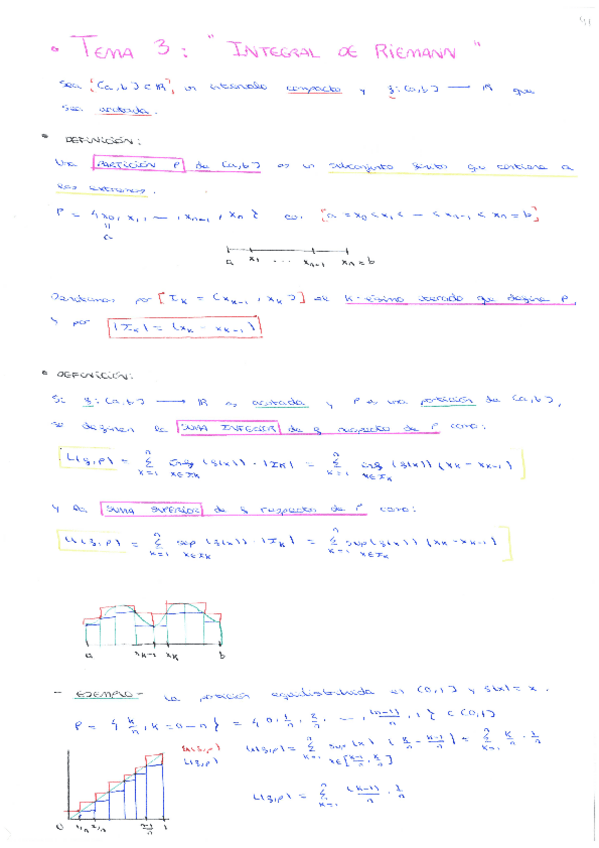 • TEMA 3: "INTEGRAL DE RIEMANN"
Sea [a,b] ⊂ ℝ, un intervalo compacto y f: [a,b] ⟶ ℝ que
sea acotada.
• DEFINICIÓN:
Una PARTICIÓN P de [a,b] es un subconjunto finito que contiene a
los extremos.
P = {x₀, x₁, ..., xₙ₋₁, xₙ} con [a = x₀ < x₁ < ... < xₙ₋₁ < xₙ = b]
"
a
a x₁ ... xₙ₋₁ xₙ = b
Denotamos por [Iₖ = [xₖ₋₁, xₖ]] el k-ésimo intervalo que define P,
y por |Iₖ| = (xₖ - xₖ₋₁)
• DEFINICIÓN:
Si f: [a,b] ⟶ ℝ es acotada y P es una partición de [a,b],
se definen la SUMA INFERIOR de f respecto de P como:
L(f,P) = Σₖ₌₁ⁿ inf x∈Iₖ (f(x)) · |Iₖ| = Σₖ₌₁ⁿ inf x∈Iₖ (f(x)) (xₖ - xₖ₋₁)
y la SUMA SUPERIOR de f respecto de P como:
U(f,P) = Σₖ₌₁ⁿ sup x∈Iₖ (f(x)) · |Iₖ| = Σₖ₌₁ⁿ sup x∈Iₖ (f(x)) (xₖ - xₖ₋₁)
a xₖ₋₁ xₖ b
- EJEMPLO - La partición equidistribuida es [0,1] y f(x) = x.
P = {k/n, k = 0 - n} = {0, 1/n, 2/n, ..., (n-1)/n, 1} ⊂ [0,1]
U(f,P)
L(f,P)
U(f,P) = Σₖ₌₁ⁿ sup x∈[k-1/n, k/n] (x) (k/n - k-1/n) = Σₖ₌₁ⁿ k/n · 1/n
L(f,P) = Σₖ₌₁ⁿ (k-1)/n · 1/n
0 1/n 2/n n-1/n 1